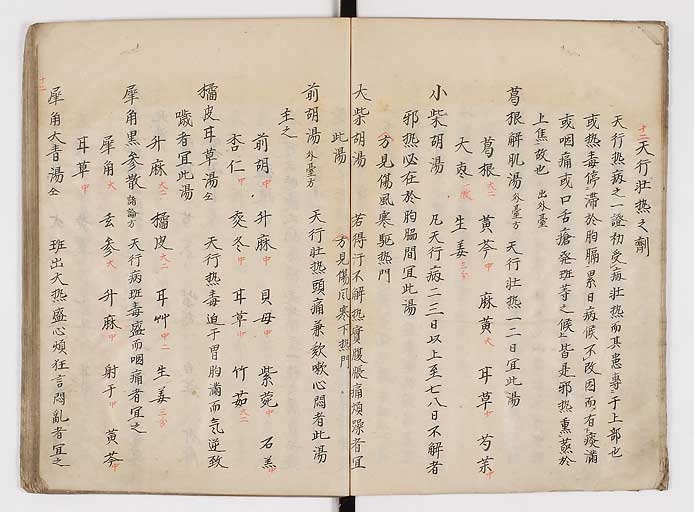 十二天行壮热之劑
天行热病之一證初受病壮热而其患専于上部也
或热毒停滞於胸膈累日病候不改因而有痰滿
或咽痛或口舌瘡発斑等之候皆是邪热熏蒸於
上焦故也 出外臺
葛根解肌湯 外臺方 天行壮热一二日宜此湯
葛根大二 黄芩中 麻黄大 耳草中 芍薬中
大棗一散 生姜三分
小柴胡湯 凡天行病二三日以上至七八日不解者
邪热必在於胸脇間宜此湯
方見傷風寒駈热門
大柴胡湯 若得汗不解热實腹脹痛煩躁者宜
此湯 方見傷風寒下热門
前胡湯 外臺方 天行壮热頭痛兼欬嗽心悶者此湯
主之
前胡中 升麻中 貝母中 紫菀中 石羔中
杏仁中 麦冬中 耳草中 竹茹大二
橘皮耳草湯仝 天行热毒迫于胃胸滿而气逆致
噦者宜此湯
升麻大二 橘皮大二 耳艸中二 生姜三分
犀角黒参散 諸論方 天行病斑毒盛而咽痛者宜之
犀角大 玄参大 升麻中 射干中 黄芩中
耳草中
犀角大青湯仝 斑出大热盛心煩狂言悶乱者宜之
十二